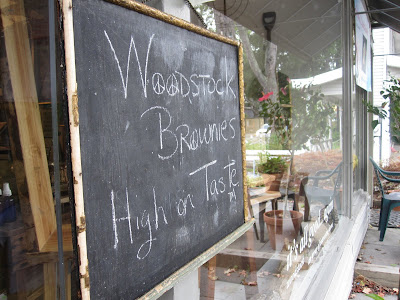 Woodstock
Brownies
High on Taste